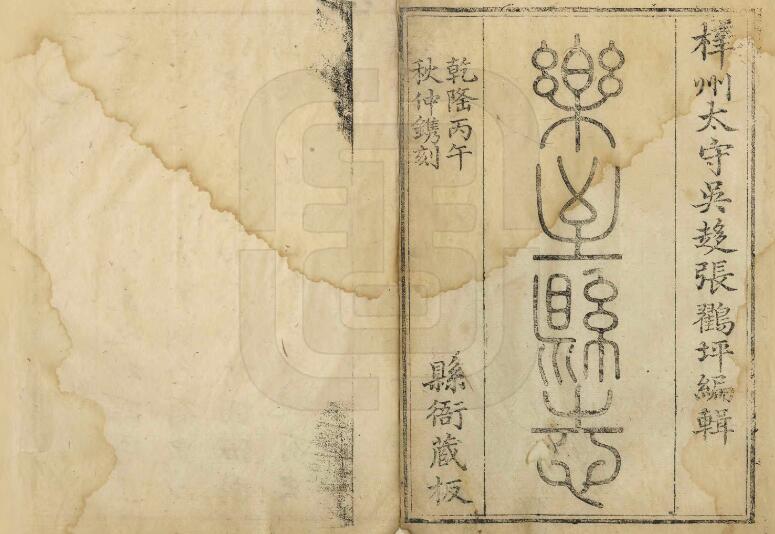 梓州太守吳趍張鸐坪編輯
樂至縣志
乾隆丙午
秋仲鐫刻
縣衙蔵板